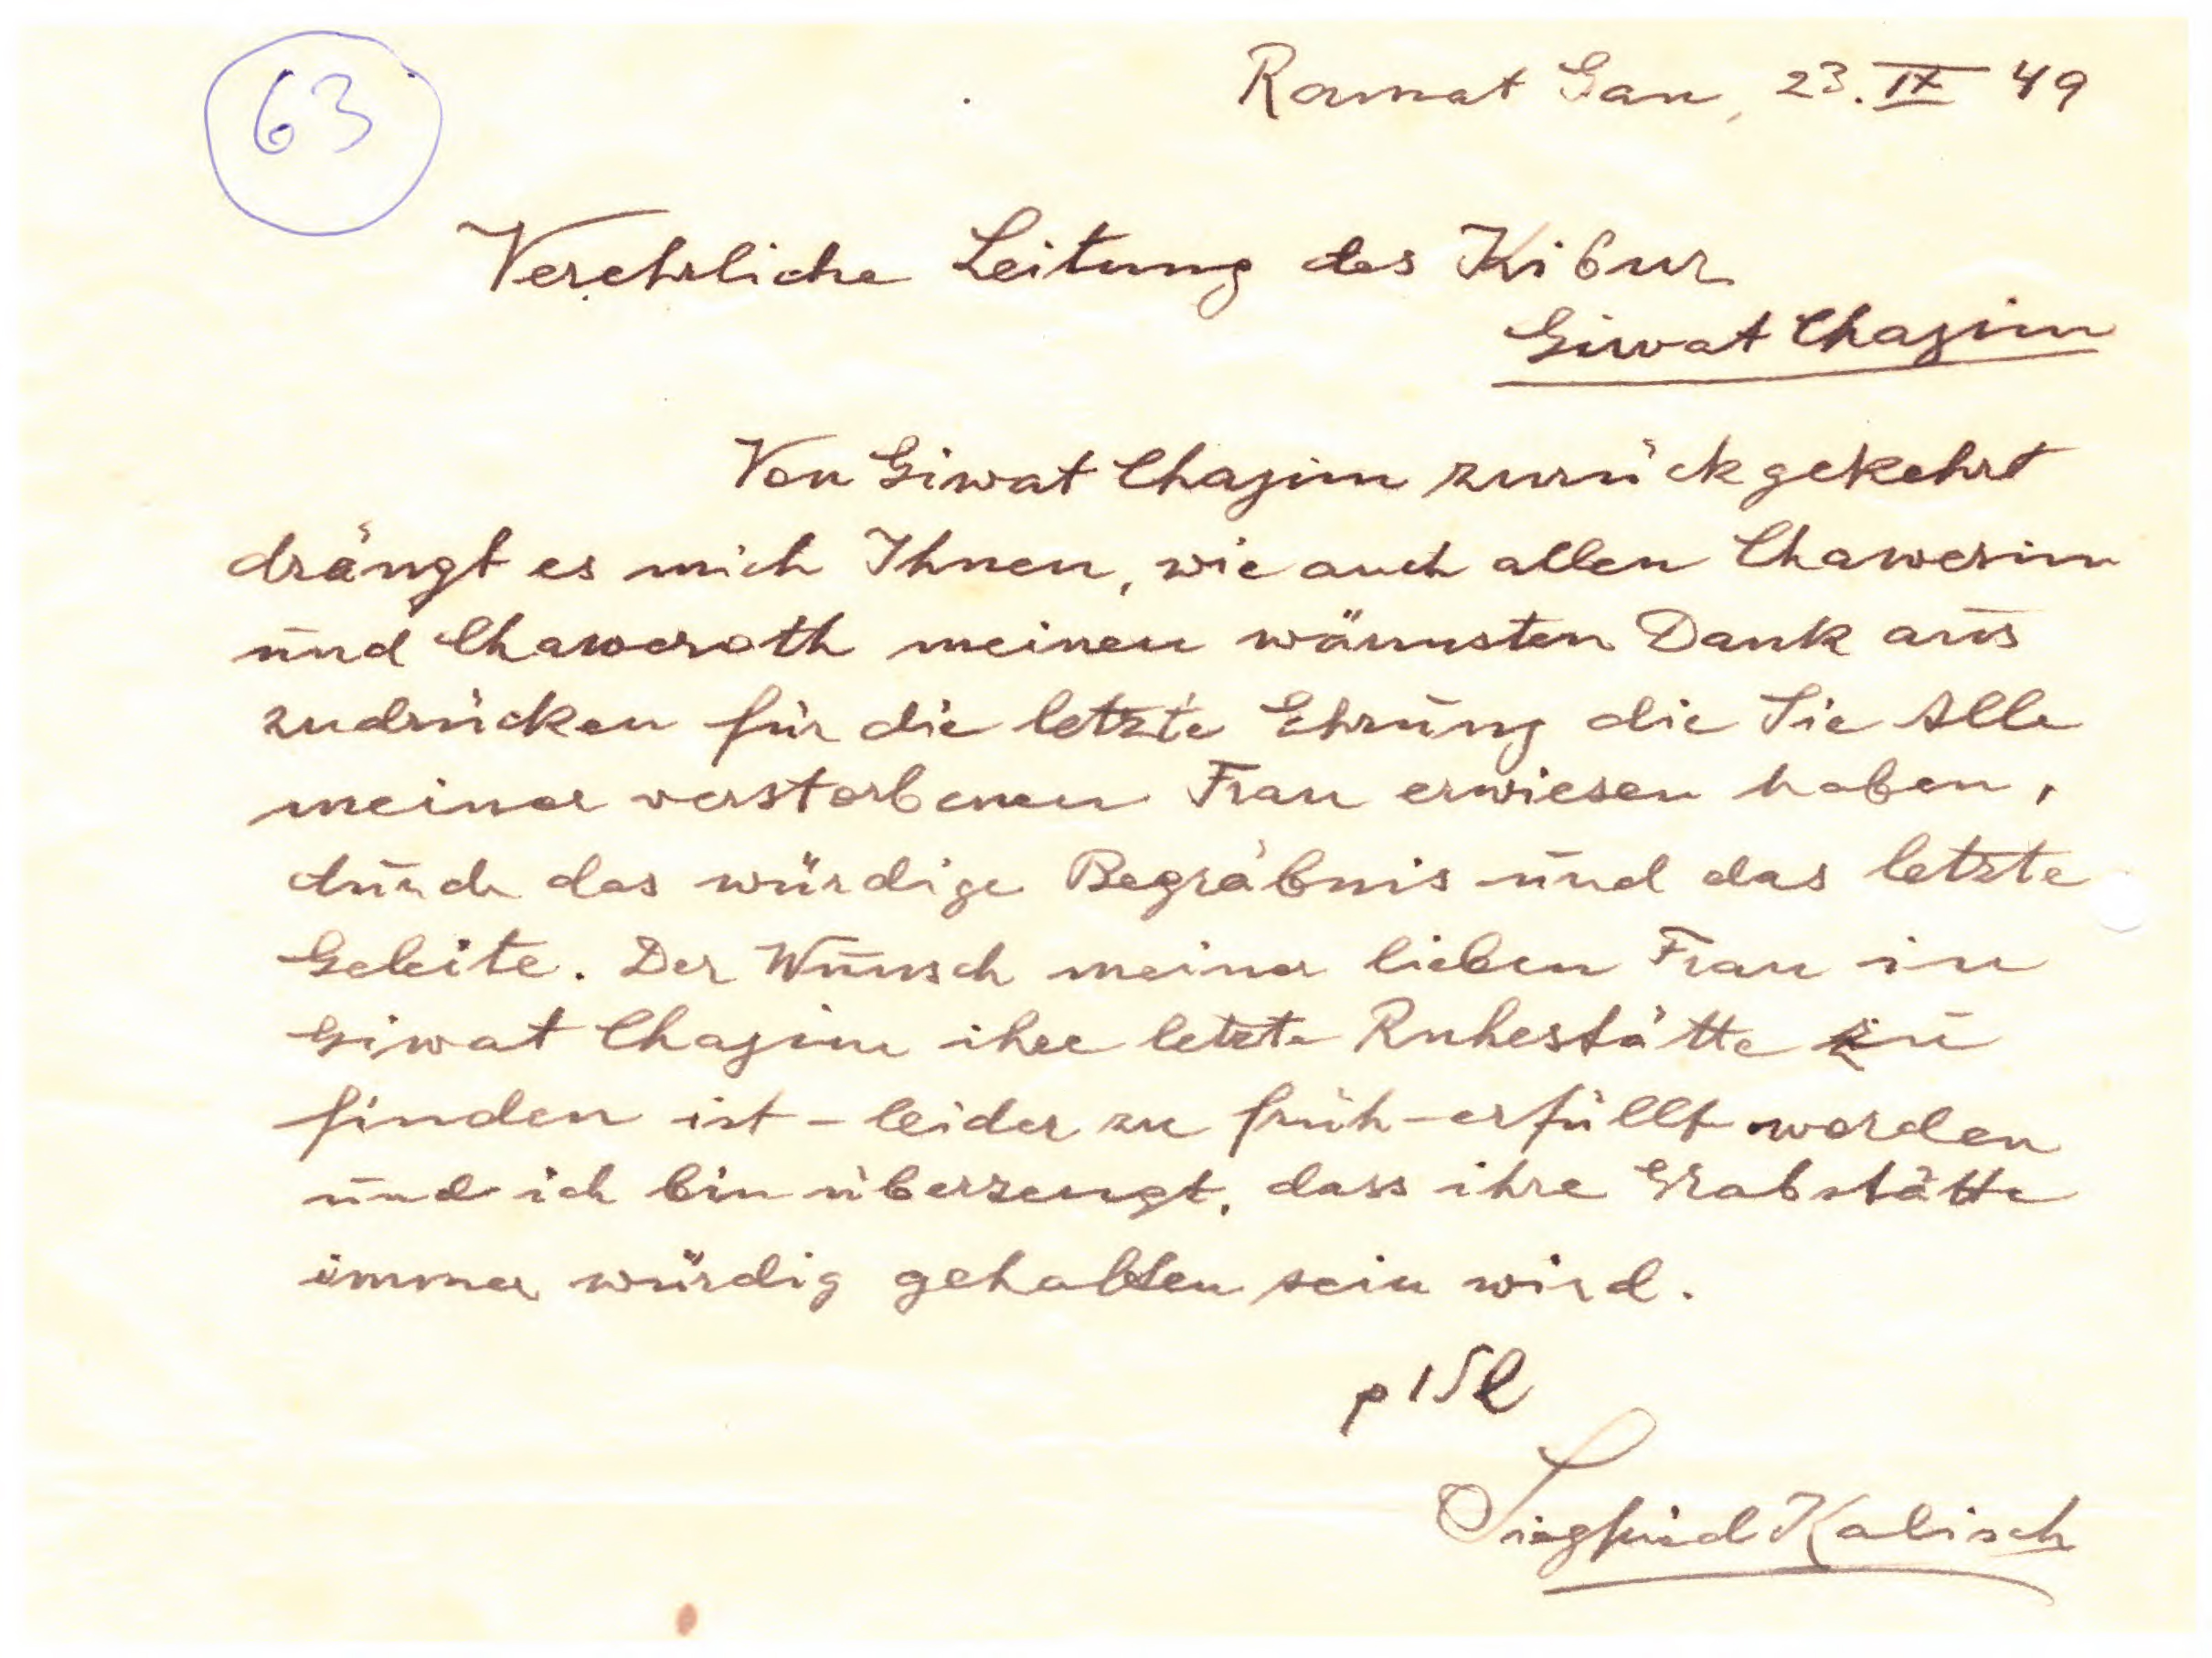 63
Ramat Gan, 23. IX 49
Verehrliche Leitung des Kibuz
Giwat Chajim
Von Giwat Chajim zurückgekehrt
drängt es mich Ihnen, wie auch allen Chawerim
und Chaweroth meinen wärmsten Dank aus
zudrücken für die letzte Ehrung die Sie Alle
meiner verstorbenen Frau erwiesen haben,
durch das würdige Begräbnis und das letzte
Geleite. Der Wunsch meiner lieben Frau in
Giwat Chajim ihre letzte Ruhestätte zu
finden ist - leider zu früh - erfüllt worden
und ich bin überzeugt, dass ihre Grabstätte
immer würdig gehalten sein wird.
שלום
Siegfried Kalisch